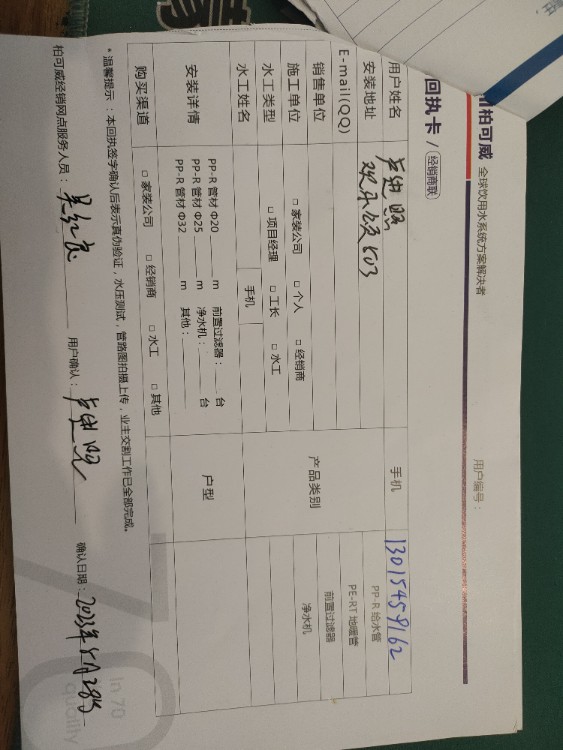 柏可威 全球饮用水系统方案解决者
用户编号：
回执卡 / 经销商联
用户姓名
手机 13015459162
安装地址 503
E-mail(QQ)
销售单位
施工单位 □ 家装公司 □ 个人 □ 经销商
水工类型 □ 项目经理 □ 工长 □ 水工
水工姓名 手机
产品类别
PP-R 给水管
PE-RT 地暖管
前置过滤器
净水机
安装详情
PP-R 管材 Φ20 m 前置过滤器： 台
PP-R 管材 Φ25 m 净水机： 台
PP-R 管材 Φ32 m 其他：
户型
购买渠道 □ 家装公司 □ 经销商 □ 水工 □ 其他
*温馨提示：本回执签字确认后表示真伪验证，水压测试，管路图拍摄上传，业主交割工作已全部完成。
柏可威经销网点服务人员： 用户确认： 确认日期：2023年5月28日
In 70
quality